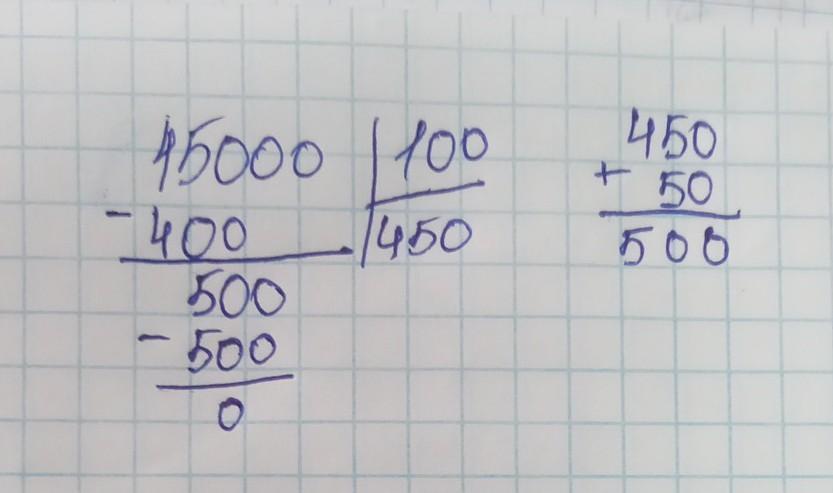 45000 100
- 400 450
500
- 500
0
450
+ 50
500